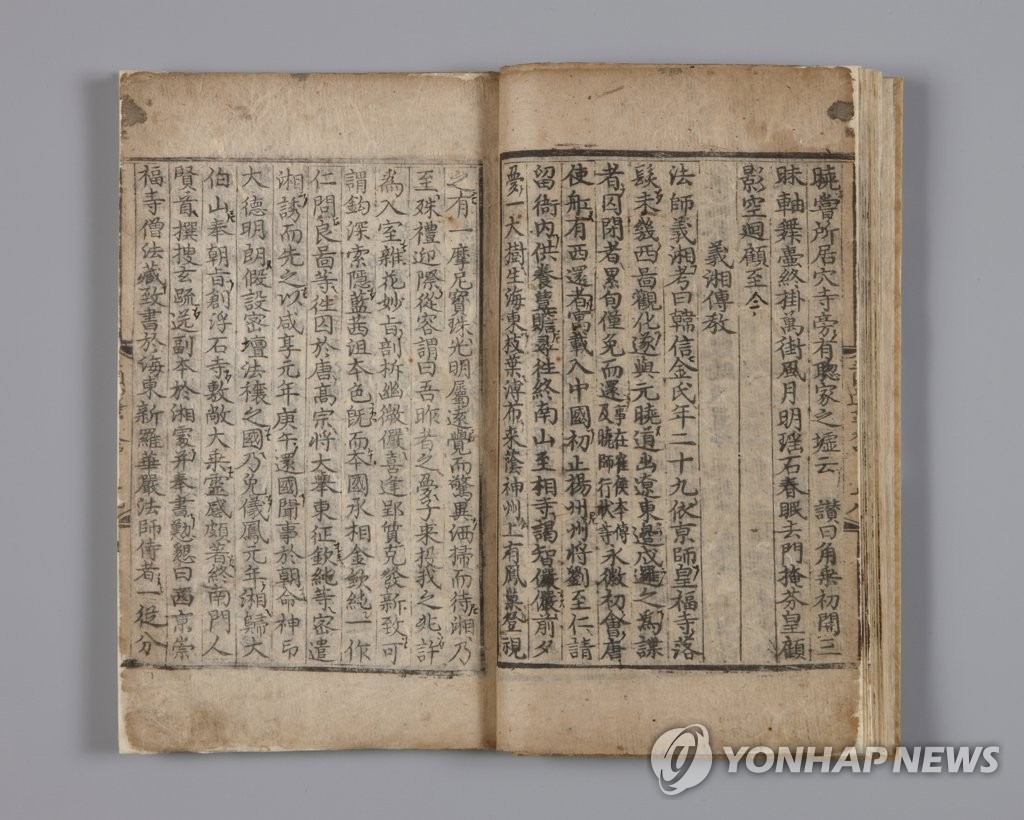 曉嘗所居穴寺旁有聰家之墟云 讚曰角乗初開三
昧軸舞壷終掛萬街風月明瑶石春眠去門掩芬皇顧
影空廻顧至今
義湘傳敎
法師義湘考曰韓信金氏年二十九依京師皇福寺落
髮未幾西啚觀化遂與元曉道出遼東邊戍邏之爲諜
者囚閉者累旬僅免而還事在崔侯本傳及曉師行狀等永徽初會唐
使舡有西還者寓載入中國初止揚州州將劉至仁請
留衙内供養豊贍尋往終南山至相寺謁智儼儼前夕
夢一大樹生海東枝葉溥布來蔭神州上有鳳巢登視
之有一摩尼寶珠光明屬遠覺而驚異洒掃而待湘乃
至殊禮迎際從容謂曰吾昨者之夢子來投我之兆許
爲入室雜花妙旨剖析幽微儼喜逢郢質克發新致可
謂鈎深索隱藍茜沮本色旣而本國承相金欽純一作
仁問良啚等往囚於唐髙宗將大擧東征欽純等密遣
湘誘而先之以咸享元年庚午還國聞事於朝命神印
大德明朗假設密壇法禳之國乃免儀鳳元年湘歸大
伯山奉朝旨創浮石寺敷敞大乗靈感頗著終南門人
賢首撰搜玄疏送副本於湘處并奉書懃懇曰西京崇
福寺僧法藏致書於海東新羅華嚴法師侍者一從分
YONHAP NEWS